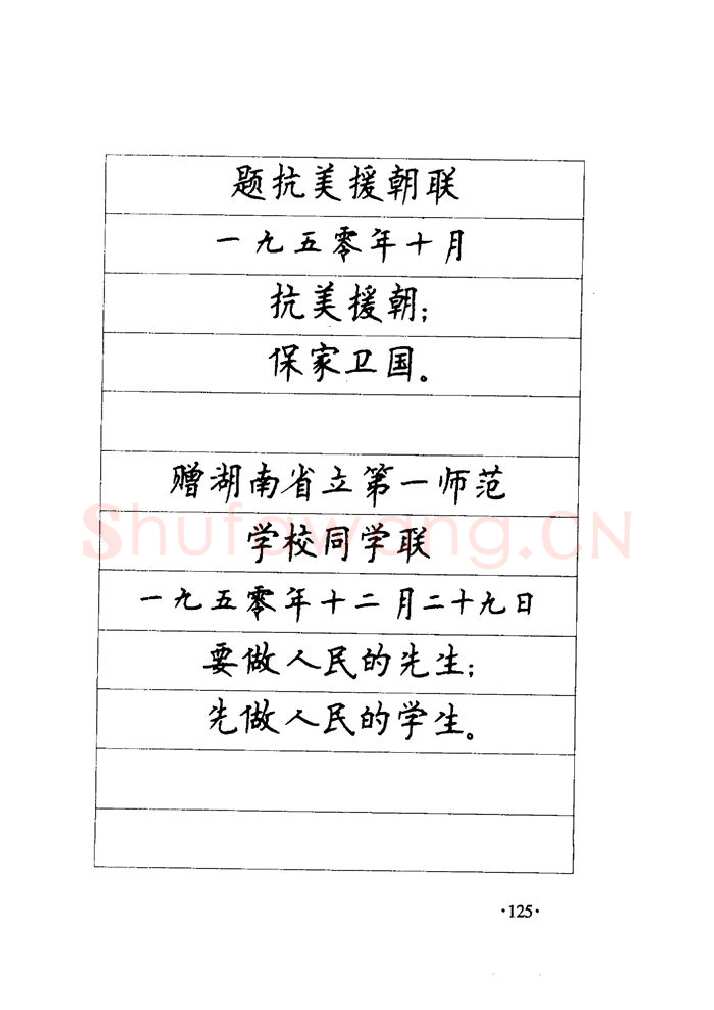 题抗美援朝联
一九五零年十月
抗美援朝;
保家卫国。
赠湖南省立第一师范
学校同学联
Shufawang.CN
一九五零年十二月二十九日
要做人民的先生;
先做人民的学生。
·125·